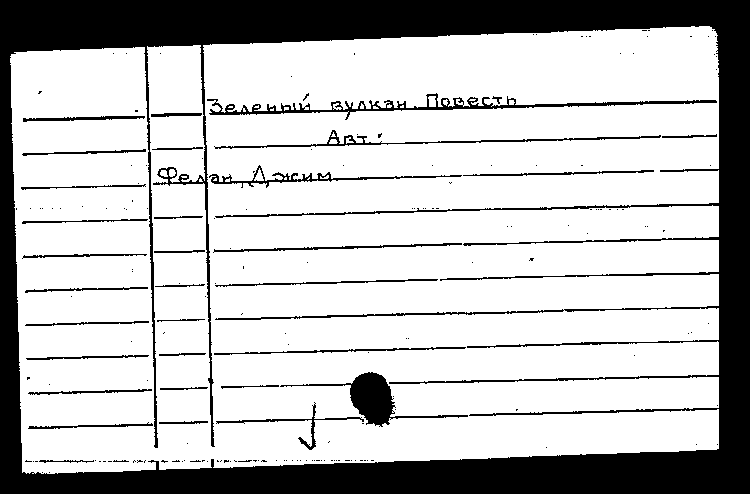 Зеленый вулкан. Повесть
Авт.:
Фелан, Джим.